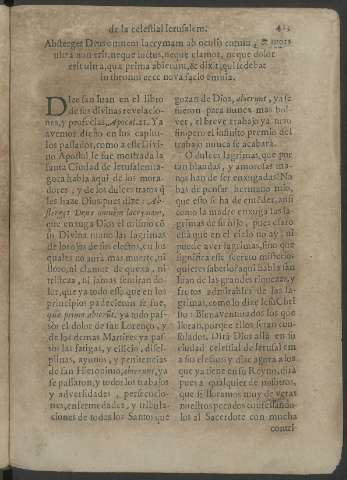 de la celestial Ierusalem. 423
Absterget Deus omnem lacrymam ab oculis eorum, & mors
ultra non erit, neque luctus, neque clamor, neque dolor
erit ultra, quia prima abierunt, & dixit, qui sedebat
in throno: ecce nova facio omnia.
DIze san Iuan en el libro
de sus divinas revelacio-
nes, y profecias, Apocal. 21. Ya
avemos dicho en los capitu-
los passados, como a este Divi-
no Apostol le fue mostrada la
santa Ciudad de Ierusalem: a-
gora habla aqui de los mora-
dores, y de los dulces tratos q̃
les haze Dios, pues dize: Ab-
sterget Deus omnem lacrymam,
que enxuga Dios el mismo cõ
su Divina mano las lagrimas
de los ojos de sus electos, en los
quales no aurà mas muerte, ni
lloro, ni clamor de quexa, ni
tristicas, ni jamas sentiran do-
lor, que ya todo esso que en los
principios padecieron se fue,
que prima abierũt, ya todo pas-
sò el dolor de san Lorenço, y
de los demas Martires ya pas-
sò las fatigas, y cilicio, disci-
plinas, ayunos, y penitencias
de san Hieronimo, abierunt, ya
se passaron, y todos los trabajos
y adversidades, persecucio-
nes, enfermedades, y tribula-
ciones de todos los Santos que
gozan de Dios, abierunt, ya se
fueron para nunca mas bol-
ver, el breve trabajo ya tuuo
fin, pero el infinito premio del
trabajo nunca se acabarà.
O dulces lagrimas, que por
tan blandas, y amorosas ma-
nos han de ser enxugadas! No
has de pensar hermano mio,
que esto se ha de entẽder, ansi
como la madre enxuga las la-
grimas de su hijo, pues claro
està que en el cielo no ay, ni
puede aver lagrimas, sino que
significa este secreto misterio:
quieres saberlo? aqui habla san
Iuan de las grandes riquezas, y
frutos admirables de las la-
grimas, como lo dize Iesu Chri-
sto: Bienaventurados los que
lloran, porque ellos seran con-
solados. Dirà Dios allà en su
ciudad celestial de Ierusalem
a sus electos, y dize agora a los
que ya tiene en su Reyno, dirà
pues a qualquier de nosotros,
que si lloramos muy de veras
nuestros pecados confessando-
los al Sacerdote con mucha
contri-